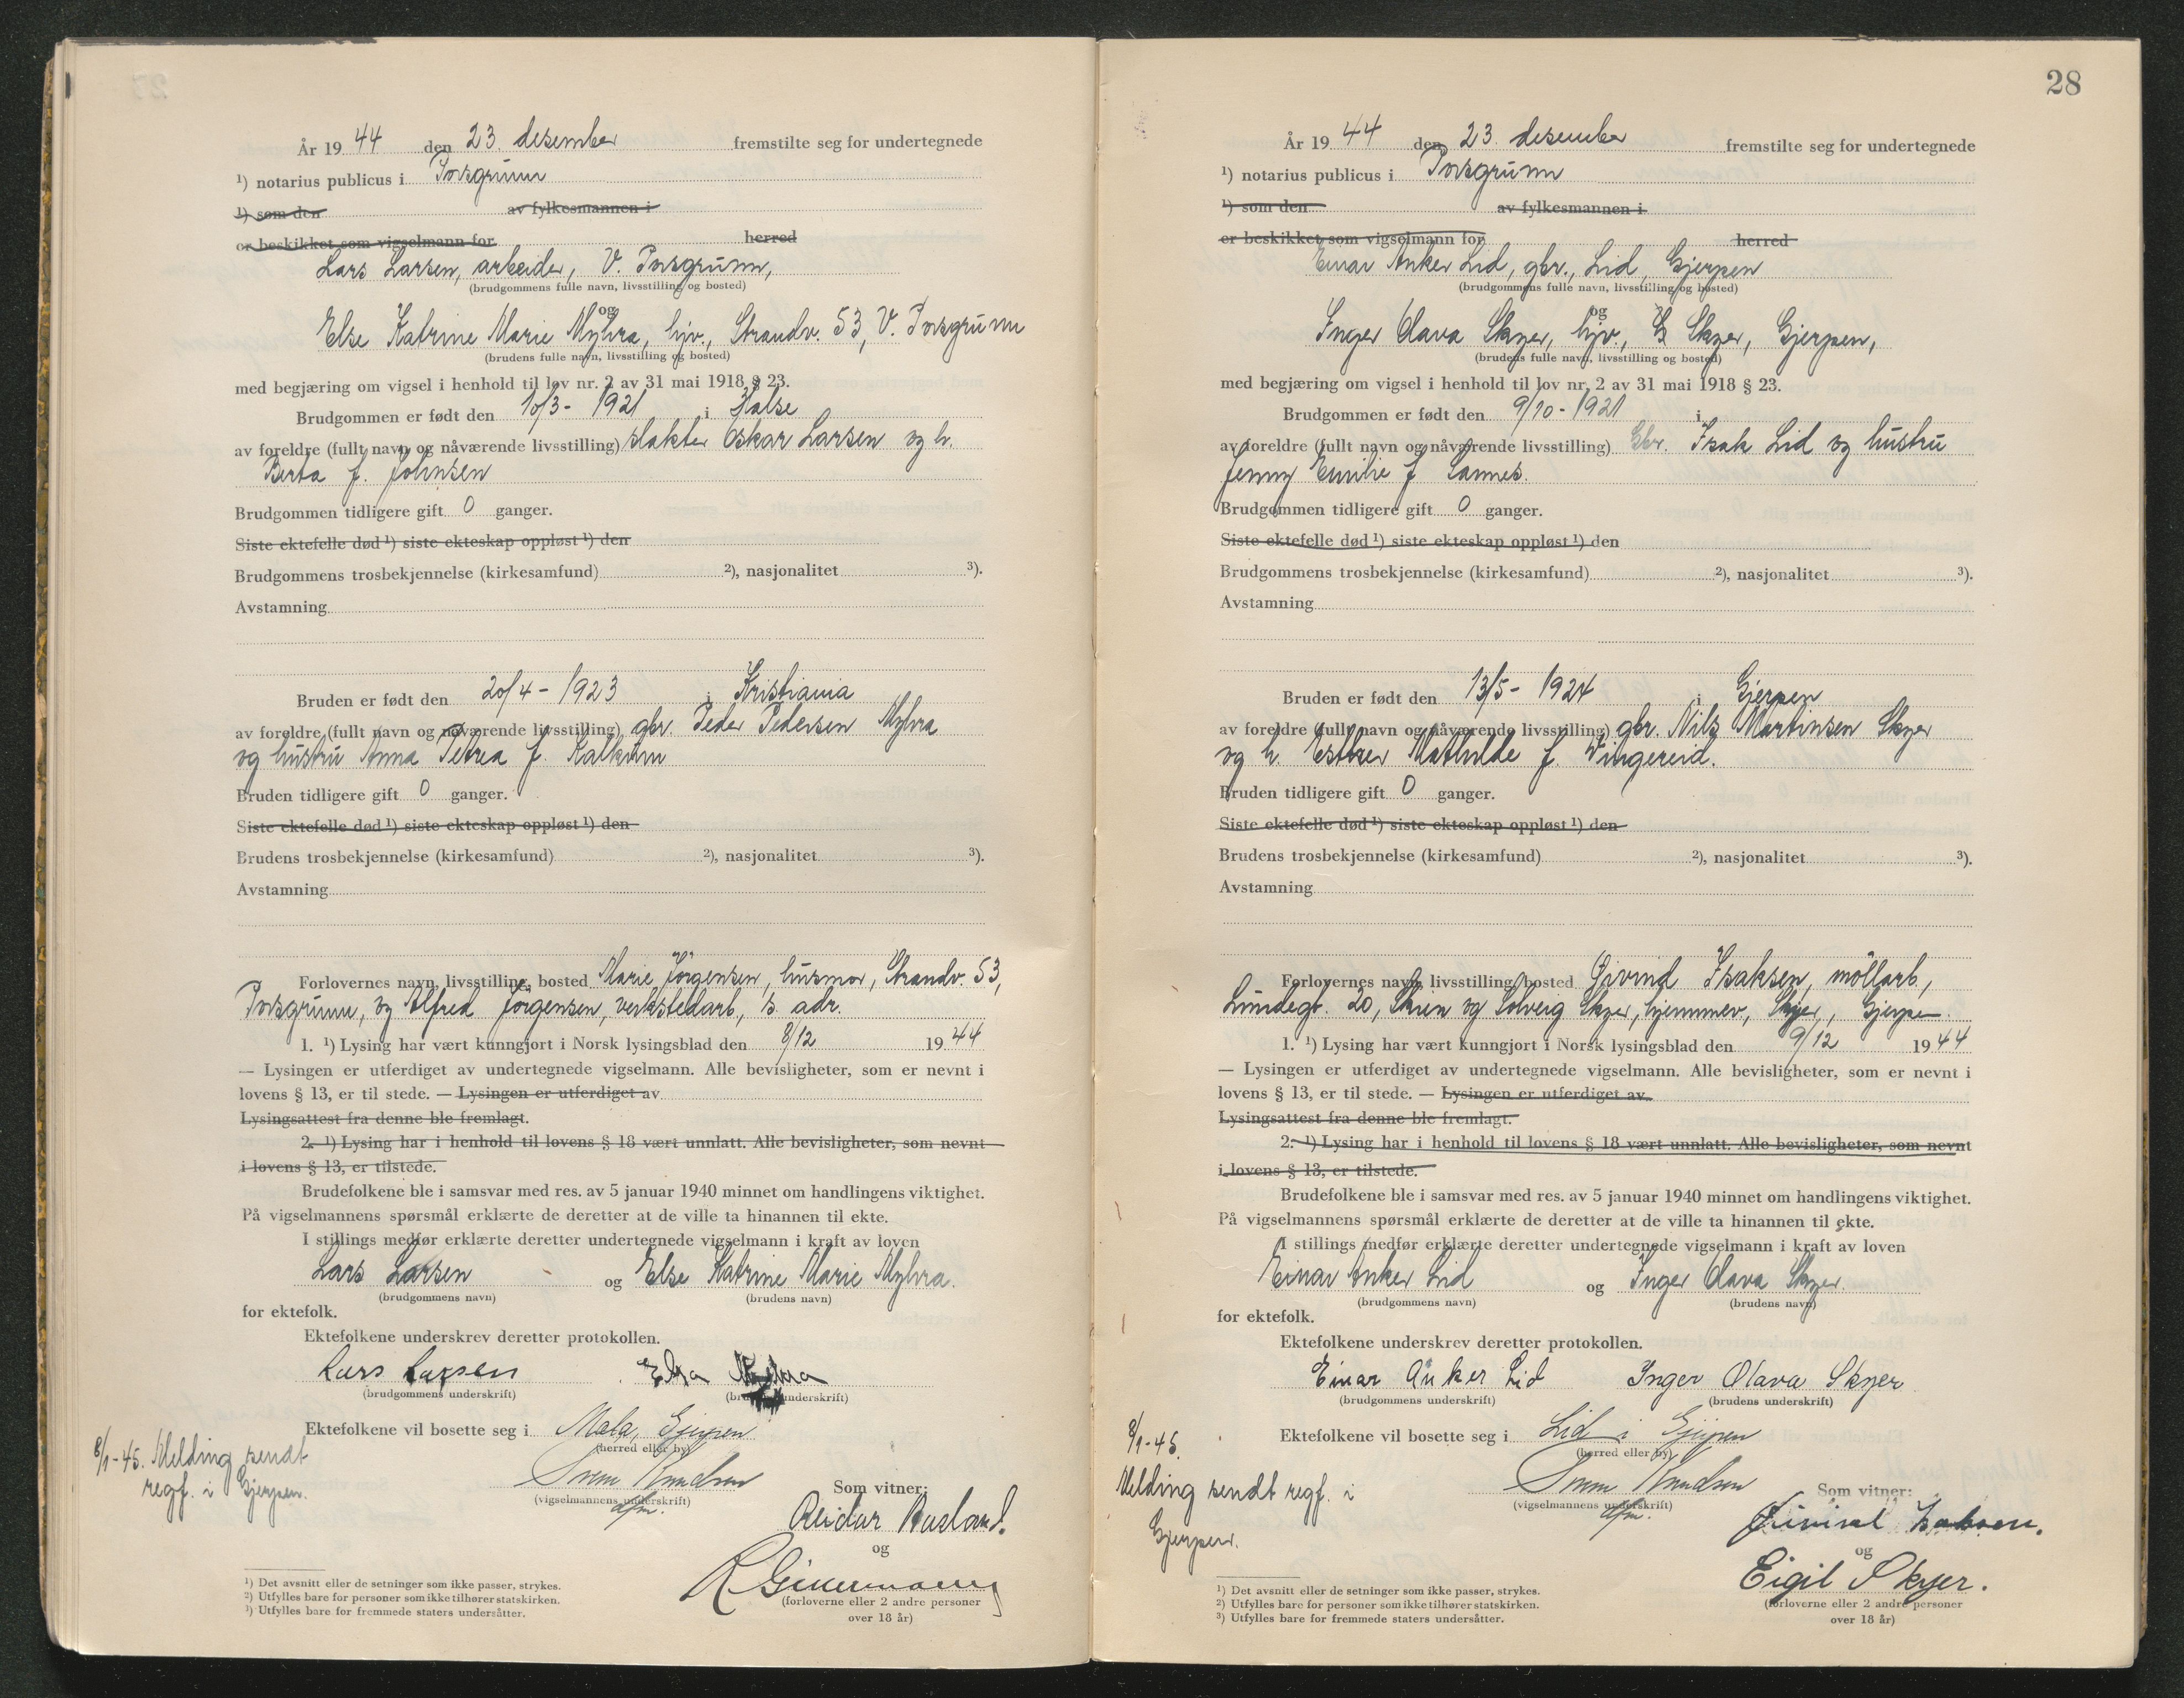 År 19 44 den 23. desember fremstilte seg for undertegnede
¹) notarius publicus i Porsgrunn
¹) som den av fylkesmannen i
er beskikket som vigselmann for herred
Lars Larsen, arbeider, V. Porsgrunn,
(brudgommens fulle navn, livsstilling og bosted)
og
Else Katrine Marie Myhra, hjv., Strandv. 53, V. Porsgrunn
(brudens fulle navn, livsstilling og bosted)
med begjæring om vigsel i henhold til lov nr. 2 av 31 mai 1918 § 23.
Brudgommen er født den 10/3 - 1921 i Halse
av foreldre (fullt navn og nåværende livsstilling) slakter Oskar Larsen og h.
Berta f. Johnsen
Brudgommen tidligere gift 0 ganger.
Siste ektefelle død ¹) siste ekteskap oppløst ¹) den
Brudgommens trosbekjennelse (kirkesamfund) ²), nasjonalitet ³).
Avstamning
Bruden er født den 20/4 - 1923 i Kristiania
av foreldre (fullt navn og nåværende livsstilling) gbr. Peder Pedersen Myhra
og hustru Anna Petrea f. Kalkum
Bruden tidligere gift 0 ganger.
Siste ektefelle død ¹) siste ekteskap oppløst ¹) den
Brudens trosbekjennelse (kirkesamfund) ²), nasjonalitet ³).
Avstamning
Forlovernes navn, livsstilling, bosted Marie Jörgensen, husmor, Strandv. 53,
Porsgrunn, og Alfred Jörgensen, verkstedarb., s. adr.
1. ¹) Lysing har vært kunngjort i Norsk lysingsblad den 8/12 19 44
— Lysingen er utferdiget av undertegnede vigselmann. Alle bevisligheter, som er nevnt i
lovens § 13, er til stede. — Lysingen er utferdiget av
Lysingsattest fra denne ble fremlagt.
2. ¹) Lysing har i henhold til lovens § 18 vært unnlatt. Alle bevisligheter, som nevnt
i lovens § 13, er tilstede.
Brudefolkene ble i samsvar med res. av 5 januar 1940 minnet om handlingens viktighet.
På vigselmannens spørsmål erklærte de deretter at de ville ta hinannen til ekte.
I stillings medfør erklærte deretter undertegnede vigselmann i kraft av loven
Lars Larsen og Else Katrine Marie Myhra.
(brudgommens navn) (brudens navn)
for ektefolk.
Ektefolkene underskrev deretter protokollen.
Lars Larsen Elsa
(brudgommens underskrift) (brudens underskrift)
Ektefolkene vil bosette seg i Mæla, Gjerpen
(herred eller by)
8/1-45. Melding sendt
regf. i Gjerpen.
Knudsen
(vigselmannens underskrift)
dfm.
Som vitner:
Reidar Aasland.
og
(forloverne eller 2 andre personer
over 18 år)
¹) Det avsnitt eller de setninger som ikke passer, strykes.
²) Utfylles bare for personer som ikke tilhører statskirken.
³) Utfylles bare for fremmede staters undersåtter.
28
År 19 44 den 23. desember fremstilte seg for undertegnede
¹) notarius publicus i Porsgrunn
¹) som den av fylkesmannen i
er beskikket som vigselmann for herred
Einar Anker Lid, gbr., Lid, Gjerpen
(brudgommens fulle navn, livsstilling og bosted)
og
Inger Olava Skyer, hjv., Skyer, Gjerpen,
(brudens fulle navn, livsstilling og bosted)
med begjæring om vigsel i henhold til lov nr. 2 av 31 mai 1918 § 23.
Brudgommen er født den 9/10 - 1921 i
av foreldre (fullt navn og nåværende livsstilling) Gbr. Isak Lid og hustru
Jenny Emilie f. Sannes.
Brudgommen tidligere gift 0 ganger.
Siste ektefelle død ¹) siste ekteskap oppløst ¹) den
Brudgommens trosbekjennelse (kirkesamfund) ²), nasjonalitet ³).
Avstamning
Bruden er født den 13/5 - 1924 i Gjerpen
av foreldre (fullt navn og nåværende livsstilling) gbr. Nils Martinsen Skyer
og h. Esther Mathilde f. Vingereid.
Bruden tidligere gift 0 ganger.
Siste ektefelle død ¹) siste ekteskap oppløst ¹) den
Brudens trosbekjennelse (kirkesamfund) ²), nasjonalitet ³).
Avstamning
Forlovernes navn, livsstilling, bosted Øivind Isaksen, möllarb.,
Lundegt. 20, Skien og Solveig Skyer, hjemmev., Skyer, Gjerpen.
1. ¹) Lysing har vært kunngjort i Norsk lysingsblad den 9/12 19 44
— Lysingen er utferdiget av undertegnede vigselmann. Alle bevisligheter, som er nevnt i
lovens § 13, er til stede. — Lysingen er utferdiget av
Lysingsattest fra denne ble fremlagt.
2. ¹) Lysing har i henhold til lovens § 18 vært unnlatt. Alle bevisligheter, som nevnt
i lovens § 13, er tilstede.
Brudefolkene ble i samsvar med res. av 5 januar 1940 minnet om handlingens viktighet.
På vigselmannens spørsmål erklærte de deretter at de ville ta hinannen til ekte.
I stillings medfør erklærte deretter undertegnede vigselmann i kraft av loven
Einar Anker Lid og Inger Olava Skyer.
(brudgommens navn) (brudens navn)
for ektefolk.
Ektefolkene underskrev deretter protokollen.
Einar Anker Lid Inger Olava Skyer
(brudgommens underskrift) (brudens underskrift)
Ektefolkene vil bosette seg i Lid i Gjerpen
(herred eller by)
8/1-45.
Melding sendt regf. i
Gjerpen.
Knudsen
(vigselmannens underskrift)
dfm.
Som vitner:
Øivind Isaksen.
og
Eigil Skyer.
(forloverne eller 2 andre personer
over 18 år)
¹) Det avsnitt eller de setninger som ikke passer, strykes.
²) Utfylles bare for personer som ikke tilhører statskirken.
³) Utfylles bare for fremmede staters undersåtter.